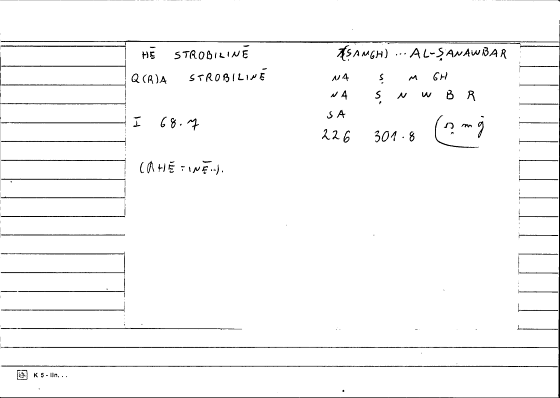 HĒ STROBILINĒ
(ṢAMGH) ... AL-ṢANAWBAR
Q(R)A STROBILINĒ
NA Ṣ M GH
NA Ṣ N W B R
SA
I 68.7
226 301.8
ṣ m ġ
K 5 - lin. . .